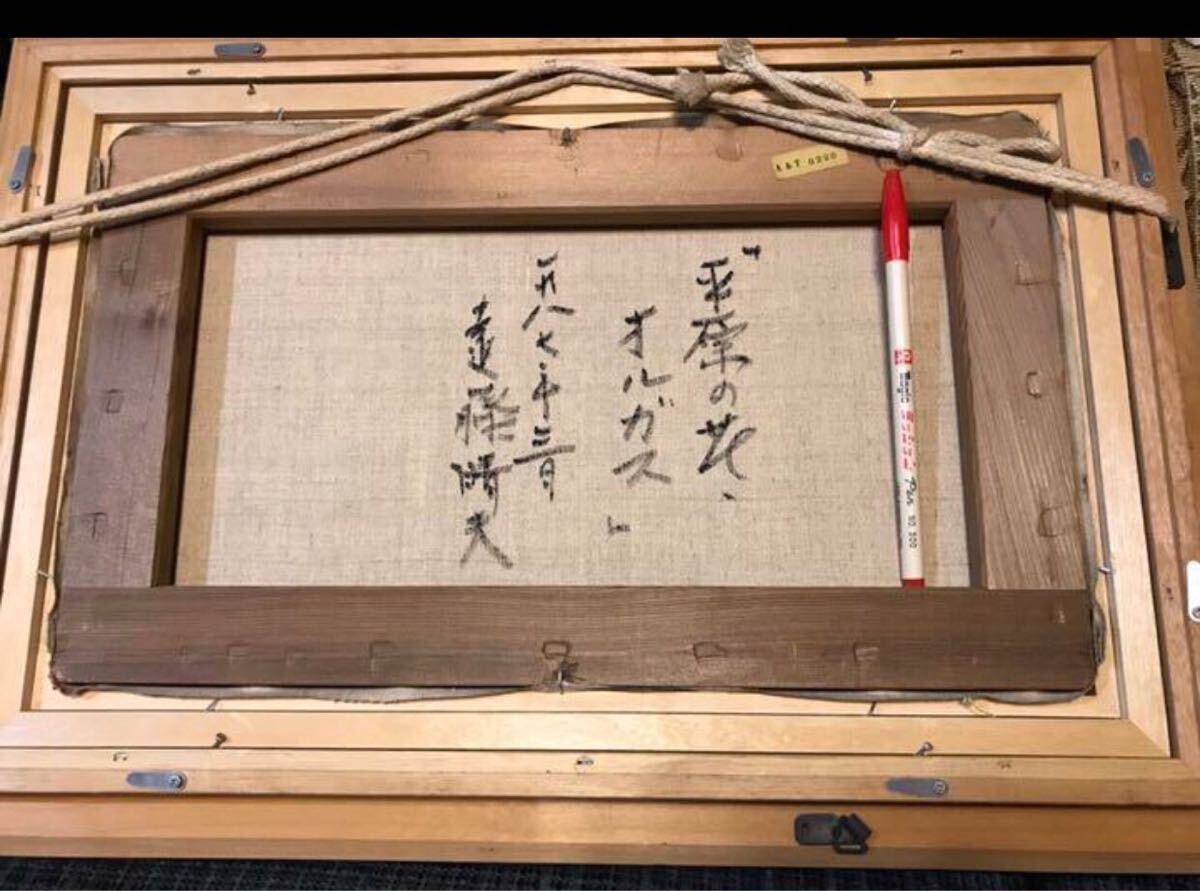 「平原の花、
オルガス」
一九八七・年三月
遠藤晴夫
A&T 0200
Magic
Pen
NO 300